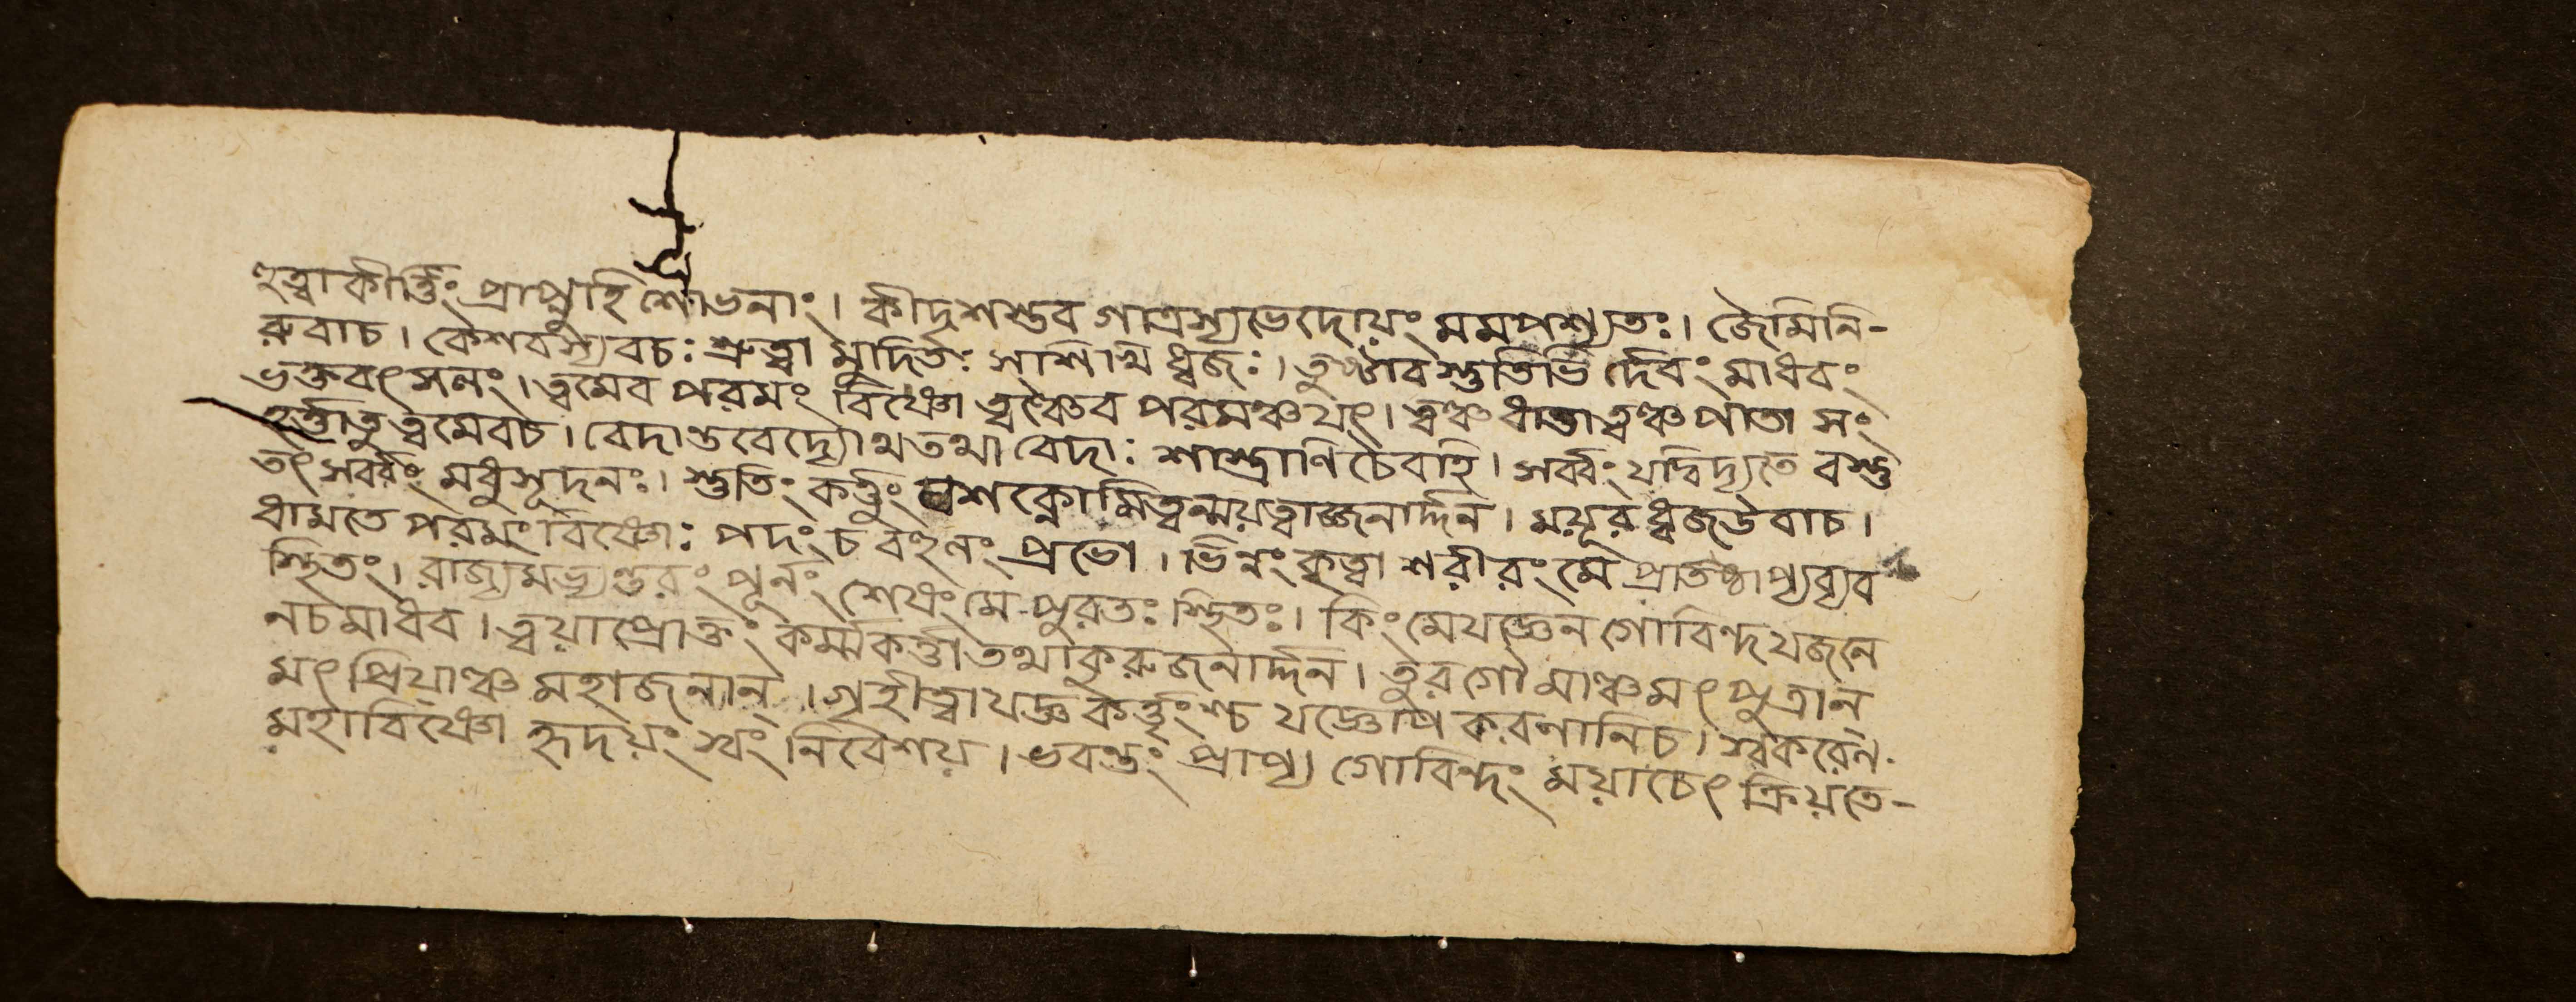 হুত্বাকীর্ত্তিং প্রাপ্নুহি শোভনাং। কীদৃশস্তব গাত্রস্যভেদোয়ং মমপশ্যতঃ। জৈমিনি-
রুবাচ। কেশবস্যবচঃ শ্রুত্বা মুদিতঃ সশিখিধ্বজঃ। তুষ্টাব স্তুতিভি র্দেবং মাধবং
ভক্তবৎসলং। ত্বমেব পরমং বিষ্ণো ত্বঞ্চৈব পরমঞ্চযৎ। ত্বঞ্চ ধাতা ত্বঞ্চ পাতা সং
হর্ত্তাতু ত্বমেবচ। বেদান্তবেদ্যোথতথা বেদাঃ শাস্ত্রাণি চৈবহি। সর্ব্বং যদ্বিদ্যতে বস্তু
তৎ সর্ব্বং মধুসূদনঃ। স্তুতিং কর্ত্তুং নশক্নোমিত্বন্ময়ত্বাজ্জনার্দ্দন। ময়ূরধ্বজউবাচ।
ধামতে পরমং বিষ্ণোঃ পদং চ বহুলং প্রভো। ভিন্নং কৃত্বা শরীরং মে প্রতিষ্ঠাপ্যব্যব
স্থিতং। রাজ্যমভ্যন্তরং পূর্নং শেষং মে পুরতঃ স্থিতঃ। কিং মেযজ্ঞেন গোবিন্দ যজনে
নচমাধব। ত্বয়াপ্রোক্তং কর্ম্মকর্ত্তাতথাকুরুজনার্দ্দন। তুরগৌ মাঞ্চমৎপুত্রান্
মৎপ্রিয়াঞ্চ মহাজনান্। গৃহীত্বাযজ্ঞ কর্ত্তৃংশ্চ যজ্ঞোপকরণানিচ। স্বকরেন
মহাবিষ্ণো হৃদয়ং স্বং নিবেশয়। ভবন্তং প্রাপ্য গোবিন্দং ময়াচেৎ ক্রিয়তে-